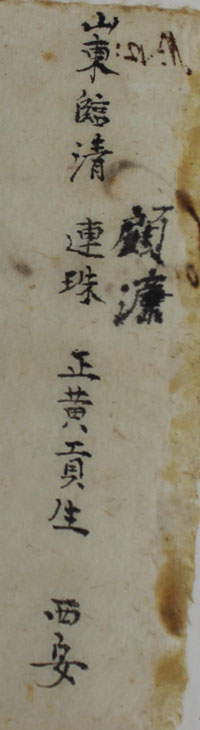 顧濂
山東臨清 連珠 正黃貢生 西安